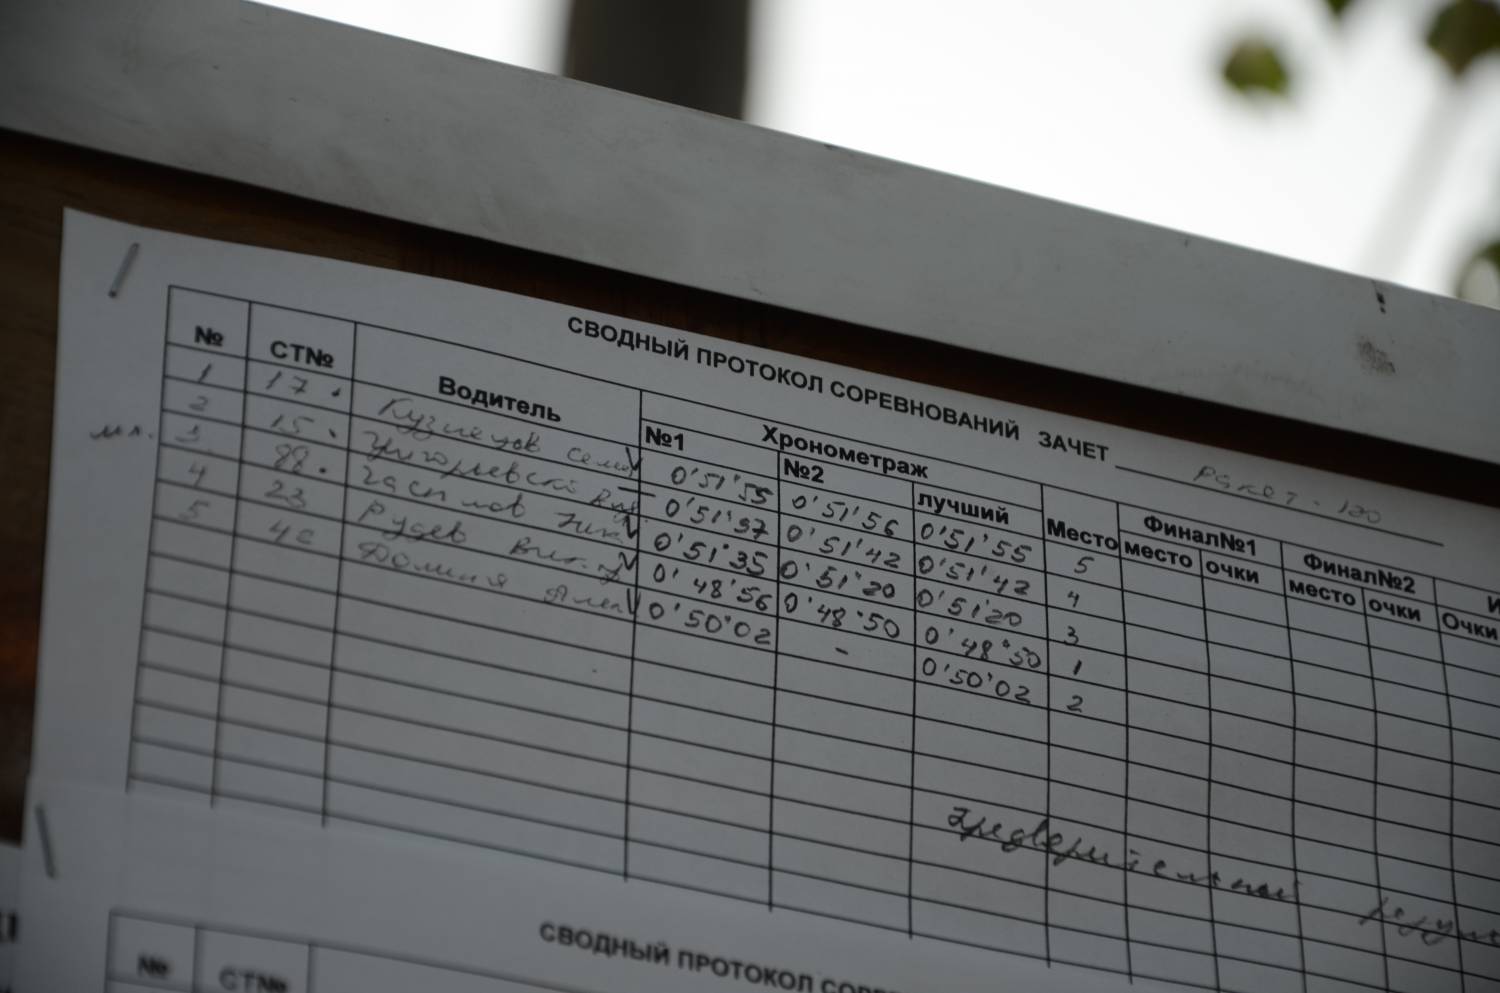 СВОДНЫЙ ПРОТОКОЛ СОРЕВНОВАНИЙ ЗАЧЕТ Ракет - 120
№ СТ№ Водитель Хронометраж Место Финал№1 Финал№2
№1 №2 лучший место очки место очки Очки
1 17. Кузнецов Семе 0'51'55 0'51'56 0'51'55 5
2 15. 0'51'57 0'51'42 0'51'42 4
мл. 3 88. Ника 0'51'35 0'51'20 0'51'20 3
4 23 Рудев 0'48'56 0'48'50 0'48'50 1
5 0'50'02 - 0'50'02 2
предварительный
СВОДНЫЙ ПРОТОКОЛ
№ СТ№